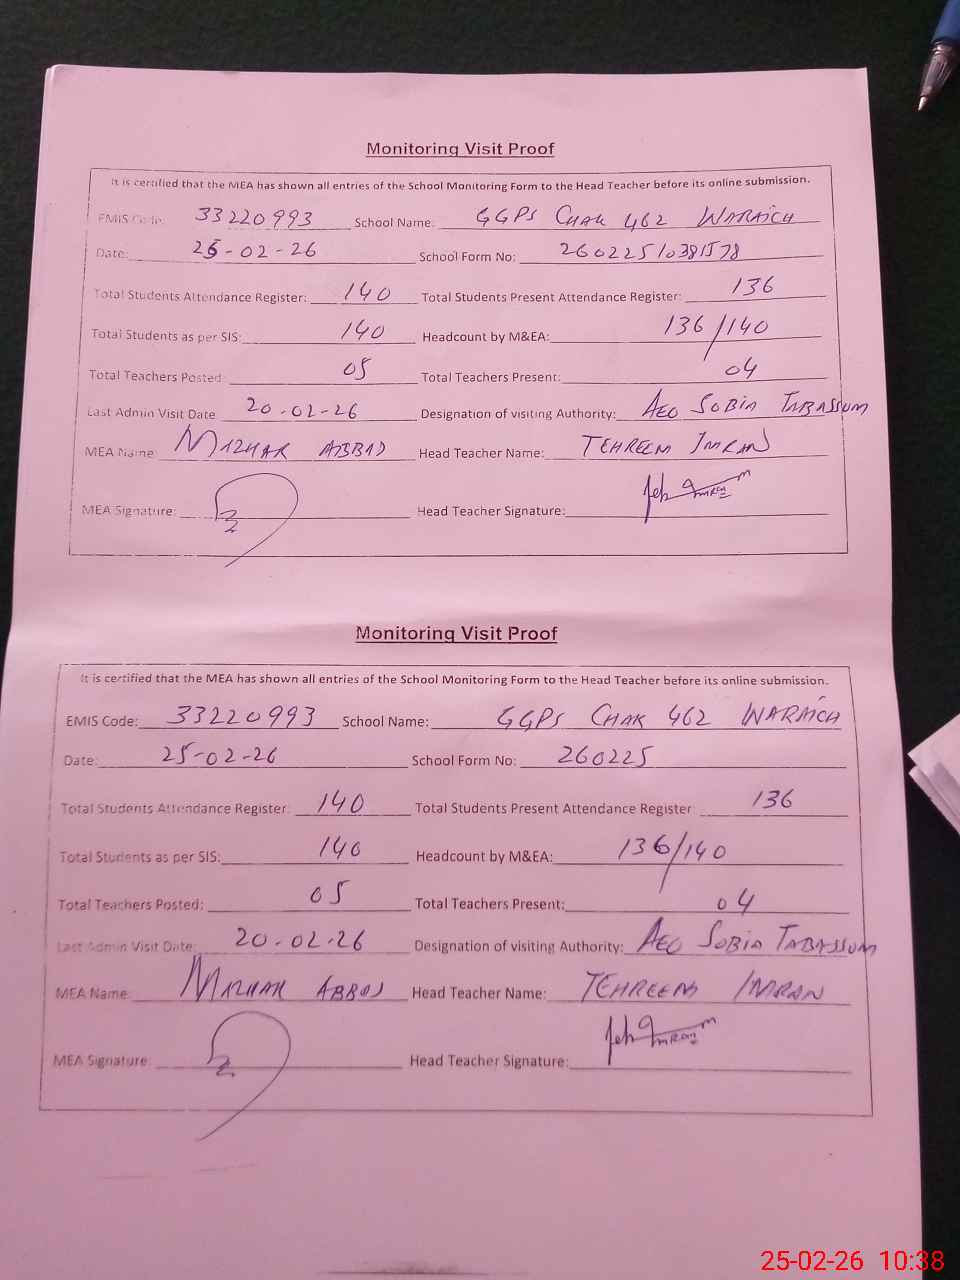 Monitoring Visit Proof
It is certified that the MEA has shown all entries of the School Monitoring Form to the Head Teacher before its online submission.
EMIS Code: 33220993 School Name: GGPS CHAK 462 WARAICH
Date: 25-02-26 School Form No: 26022510381578
Total Students Attendance Register: 140 Total Students Present Attendance Register: 136
Total Students as per SIS: 140 Headcount by M&EA: 136/140
Total Teachers Posted: 05 Total Teachers Present: 04
Last Admin Visit Date: 20-02-26 Designation of visiting Authority: AEO SOBIA TABASSUM
MEA Name: MAZHAR ABBAS Head Teacher Name: TEHREEM IMRAN
MEA Signature: Head Teacher Signature:
Monitoring Visit Proof
It is certified that the MEA has shown all entries of the School Monitoring Form to the Head Teacher before its online submission.
EMIS Code: 33220993 School Name: GGPS CHAK 462 WARAICH
Date: 25-02-26 School Form No: 260225
Total Students Attendance Register: 140 Total Students Present Attendance Register: 136
Total Students as per SIS: 140 Headcount by M&EA: 136/140
Total Teachers Posted: 05 Total Teachers Present: 04
Last Admin Visit Date: 20-02-26 Designation of visiting Authority: AEO SOBIA TABASSUM
MEA Name: MAZHAR ABBAS Head Teacher Name: TEHREEM IMRAN
MEA Signature: Head Teacher Signature:
25-02-26 10:38